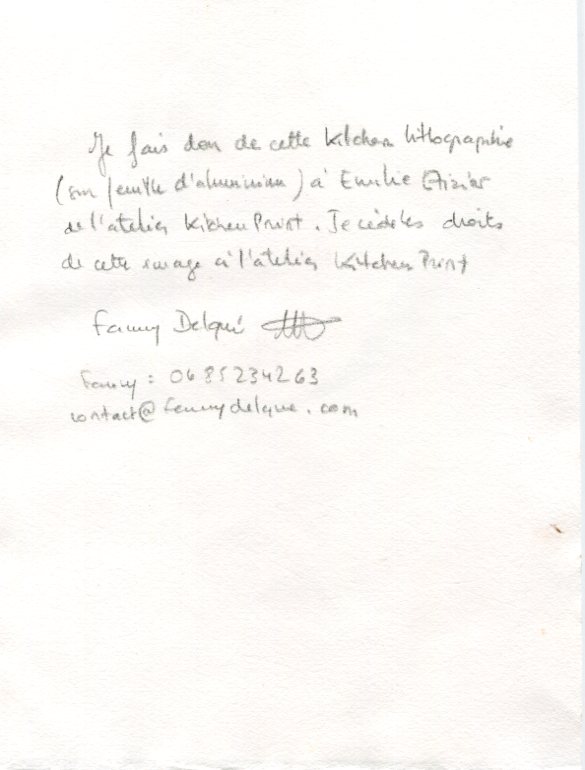 Je fais don de cette Kitchen lithographie
(sur feuille d'aluminium) à Emilie Aizier
de l'atelier Kitchen Print. Je cède les droits
de cette image à l'atelier Kitchen Print
Fanny Delqué
Fanny : 0685234263
contact@fannydelque.com